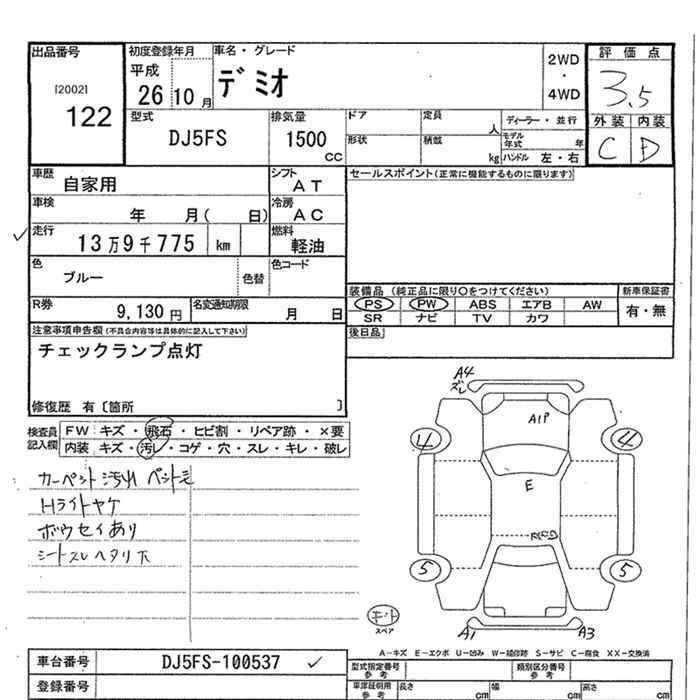 出品番号
[2002]
122
初度登録年月
平成
26 10 月
車名・グレード
デミオ
2WD
・
4WD
評価点
3.5
外装 内装
C D
型式
DJ5FS
排気量
1500
CC
ドア
定員
人
形状
積載
kg
ディーラー・並行
モデル年式 年
ハンドル 左・右
車歴
自家用
シフト
AT
車検
年 月( 日)
冷房
AC
走行
13万9千775 km
燃料
軽油
色
ブルー
色替
色コード
R券
9,130 円
名変通知期限
月 日
セールスポイント(正常に機能するものに限ります)
装備品 (純正品に限り○をつけてください)
PS PW ABS エアB AW
SR ナビ TV カワ
新車保証書
有・無
後日品
注意事項申告欄(不具合内容等は具体的に記入して下さい)
チェックランプ点灯
修復歴 有〔箇所 〕
検査員記入欄
FW キズ・飛石・ヒビ割・リペア跡・×要
内装 キズ・汚レ・コゲ・穴・スレ・キレ・破レ
カーペット汚れ ペット毛
Hライトヤケ
ボウセイあり
シートスレヘタリ大
A4
ズレ
A1P
4
4
E
5
5
キット
スペア
A1
A3
A－キズ E－エクボ U－凹み W－補修跡 S－サビ C－腐食 XX－交換済
車台番号
DJ5FS-100537
登録番号
型式指定番号
参考
類別区分番号
参考
車庫証明用
参考
長さ cm
幅 cm
高さ cm